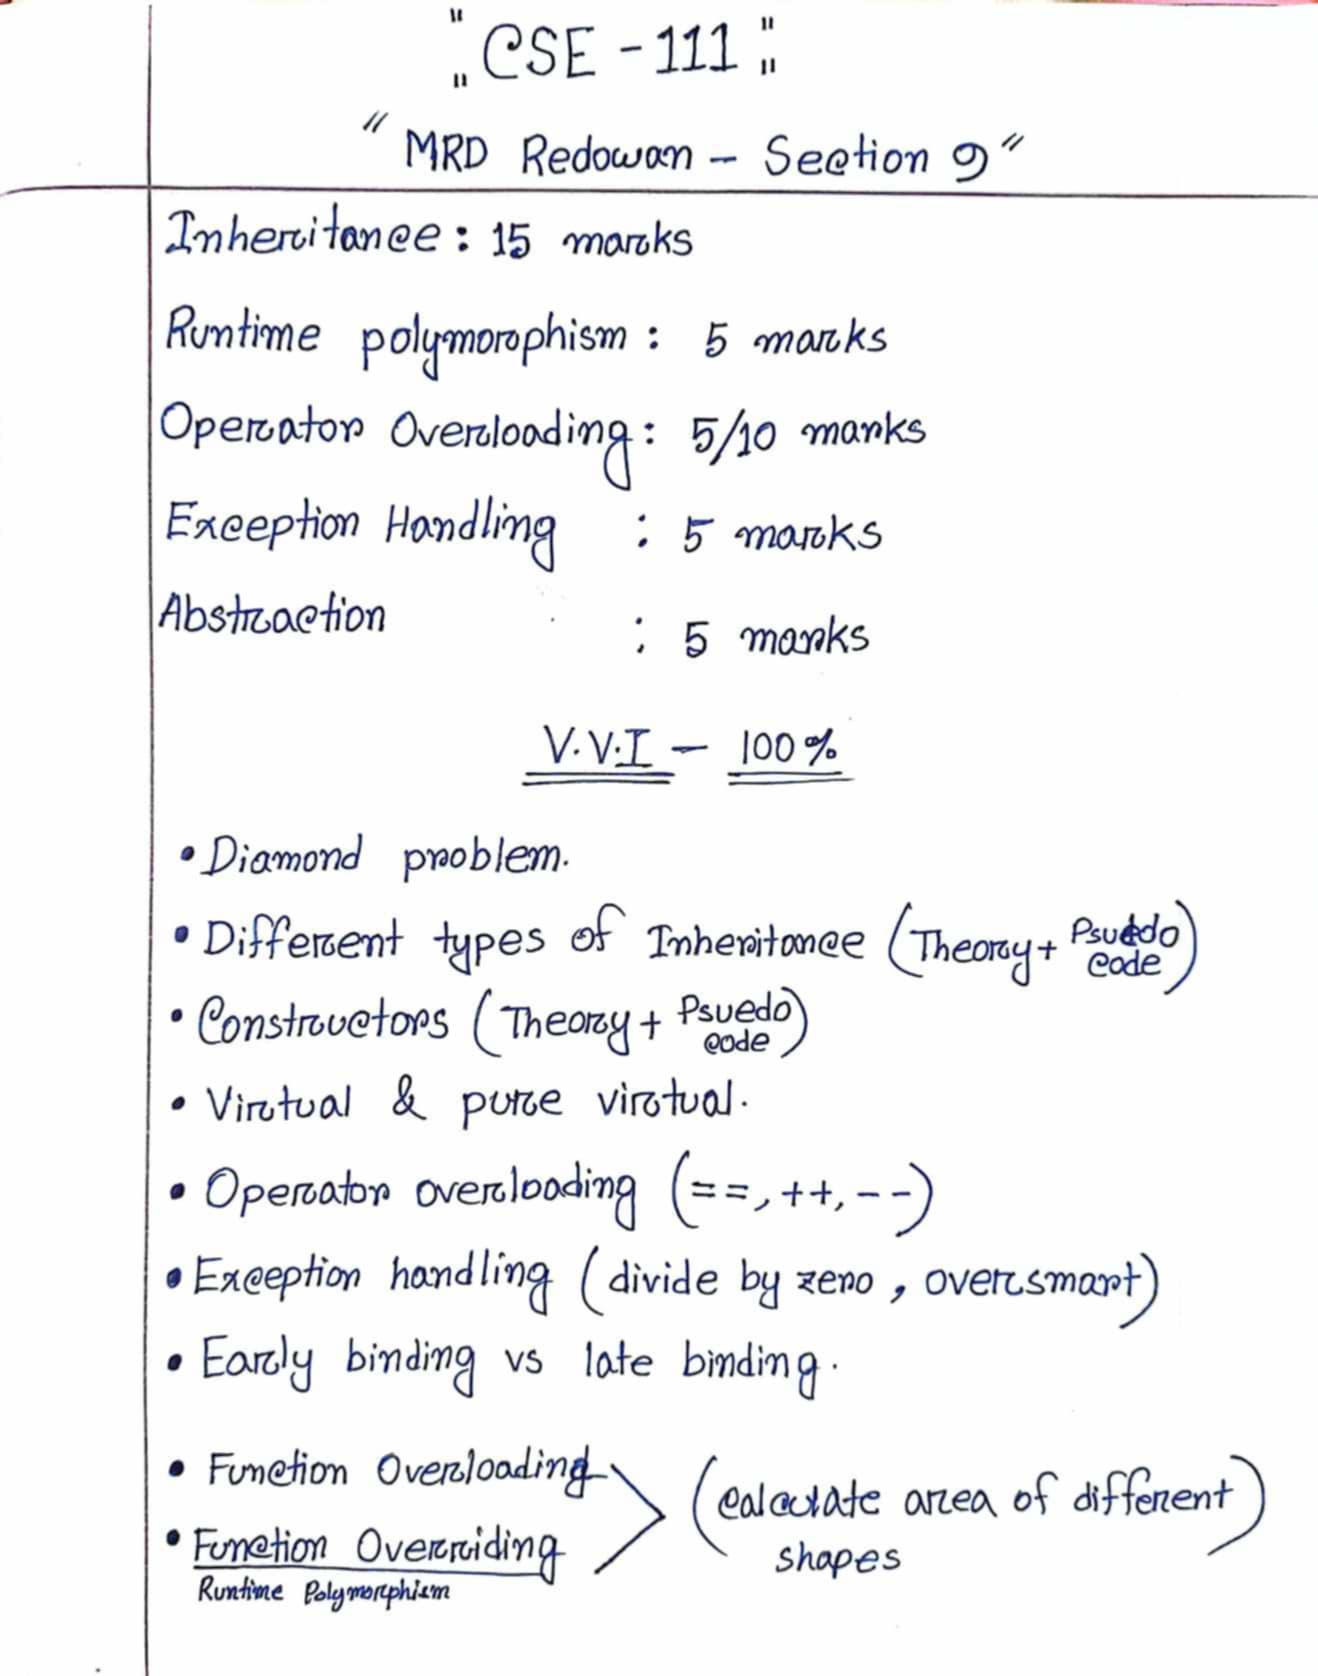 "CSE - 111"
"MRD Redowan - Section 9"
Inheritance : 15 marks
Runtime polymorphism : 5 marks
Operator Overloading : 5/10 marks
Exception Handling : 5 marks
Abstraction : 5 marks
V.V.I - 100%
• Diamond problem.
• Different types of Inheritance (Theory + Psuedo code)
• Constructors (Theory + Psuedo code)
• Virtual & pure virtual.
• Operator overloading (==, ++, --)
• Exception handling (divide by zero, oversmart)
• Early binding vs late binding.
• Function Overloading
• Function Overriding
Runtime Polymorphism
(calculate area of different shapes)